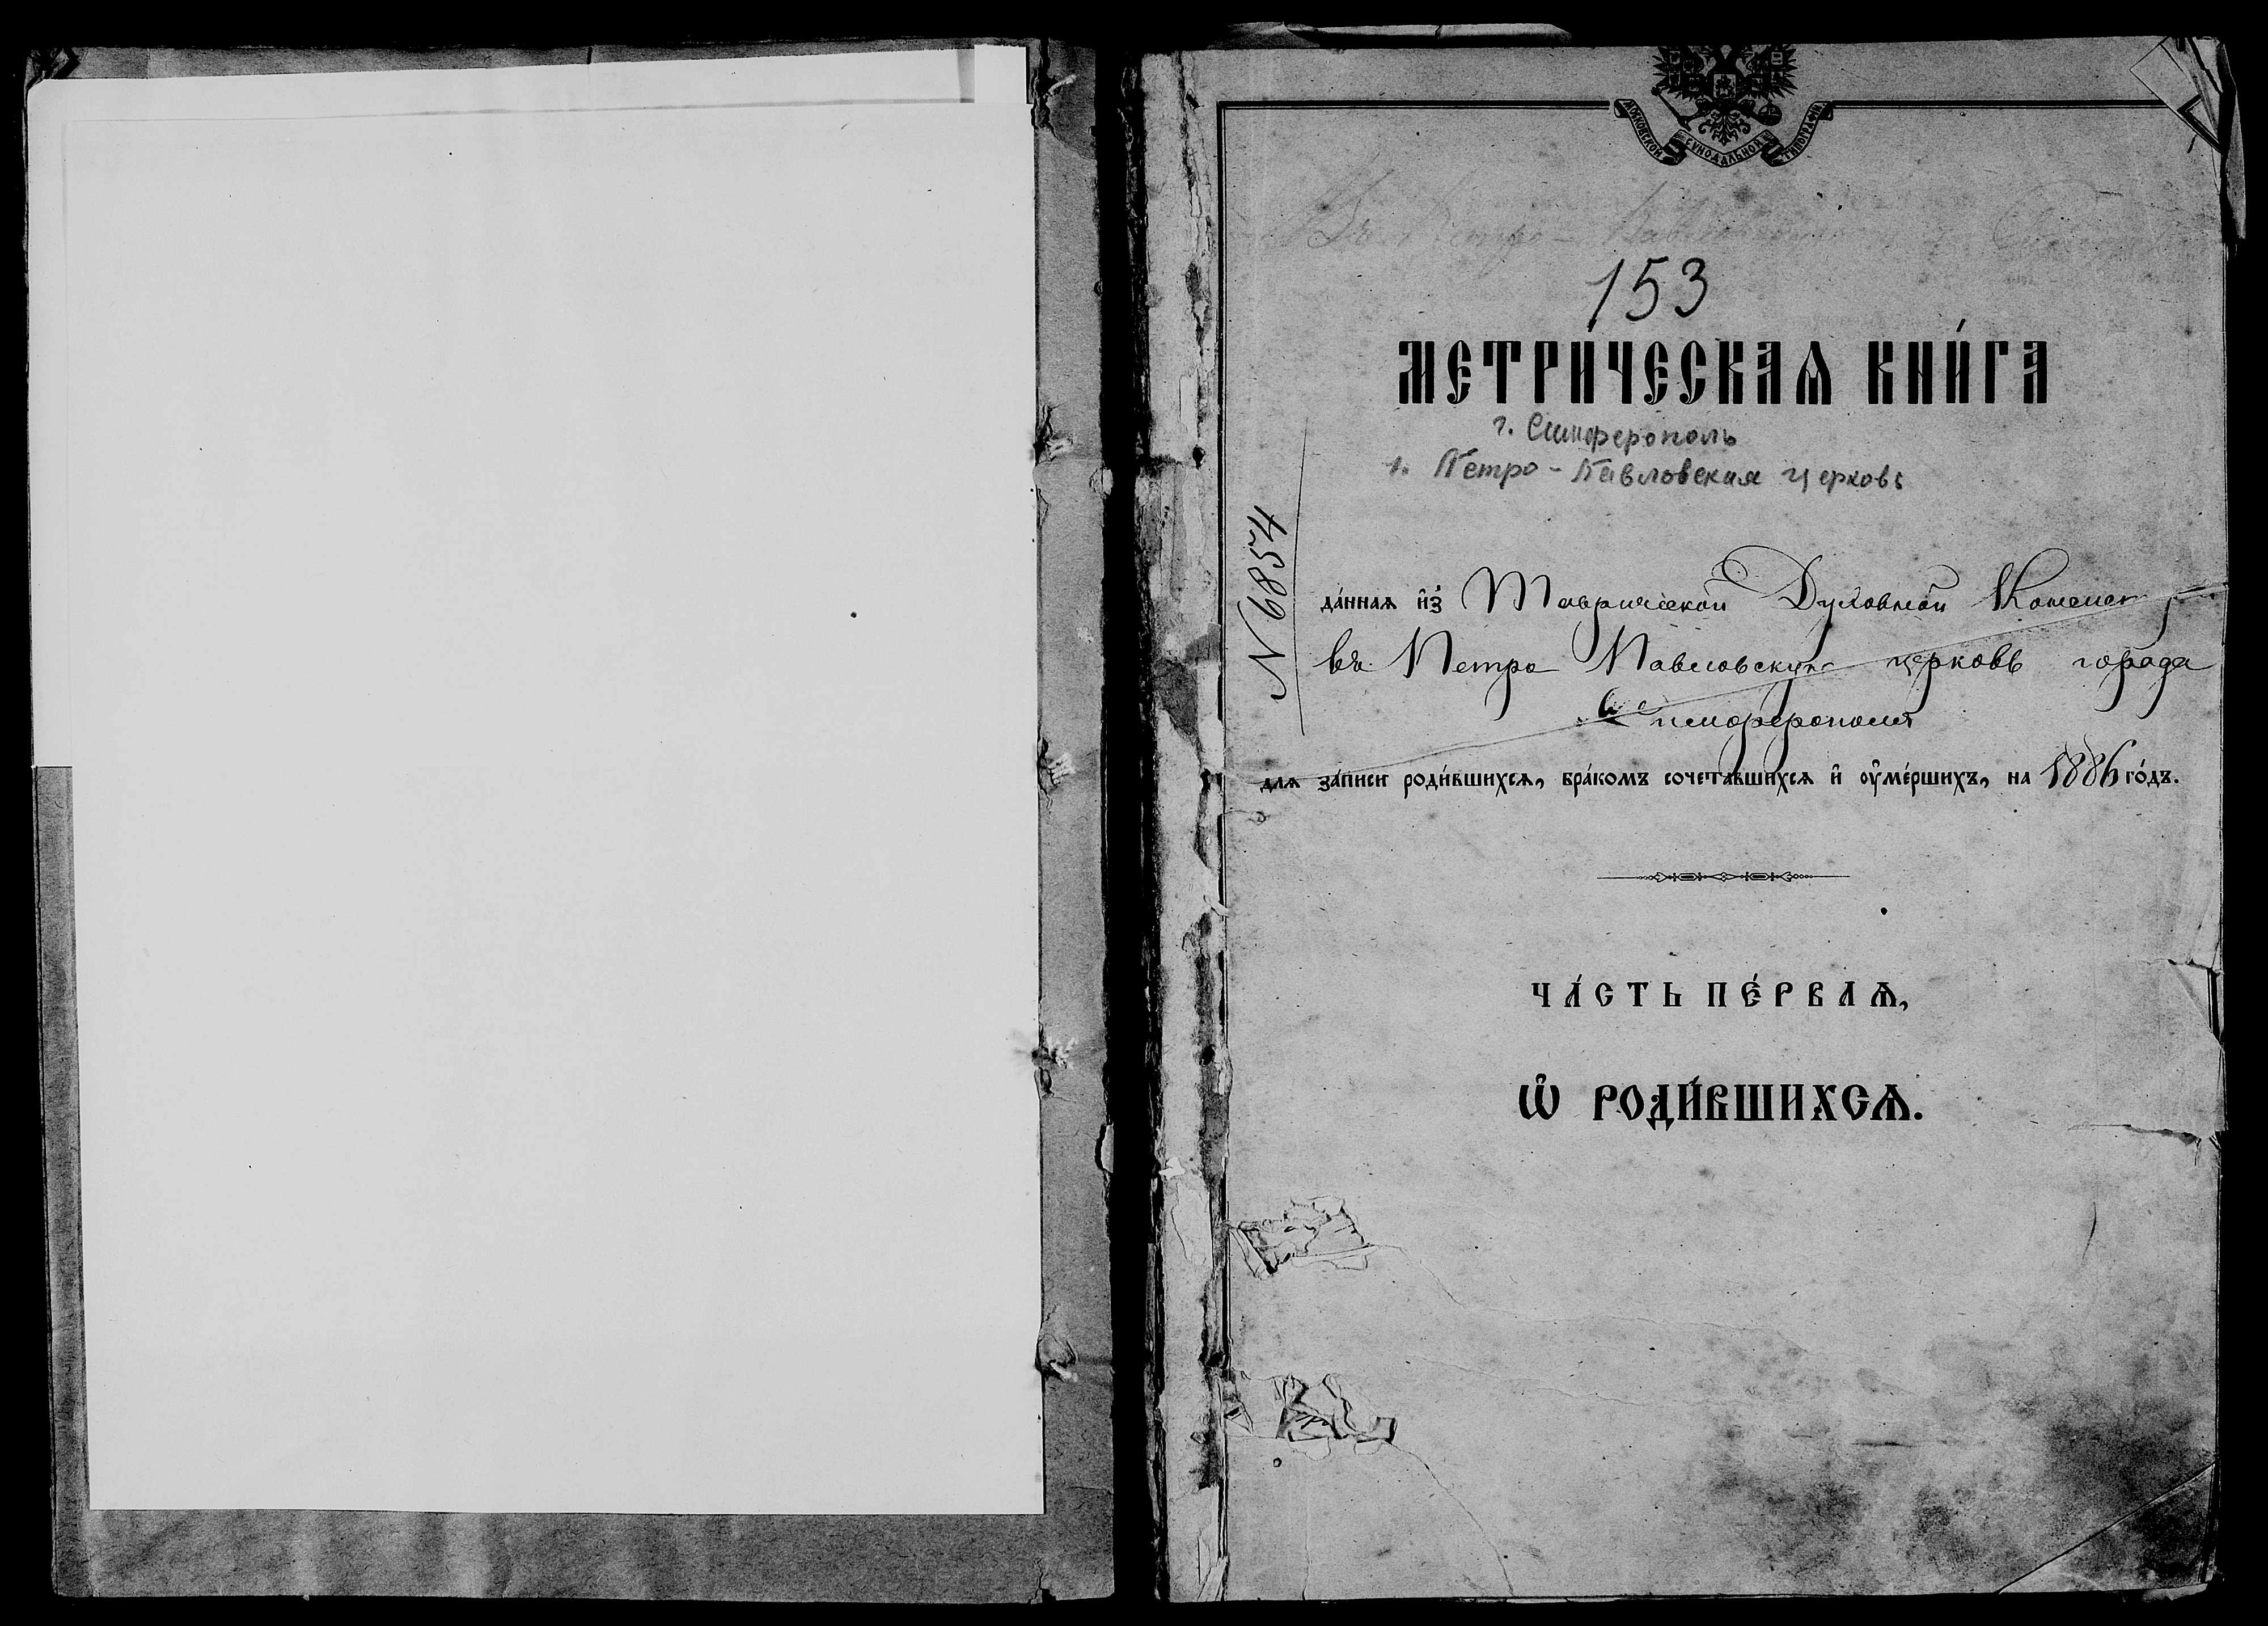 МОСКОВСКОЙ СѴНОДАЛЬНОЙ ТИПОГРАФІИ
153
МЕТРИ́ЧЕСКАѦ КНИ́ГА
г. Симферополь
1. Петро-Павловская церковь
N 6854
да́ннаѧ и҆з̾ Таврической Духовной
въ Петро Павловскую церковь города
Симферополя
для за́писи роди́вшихсѧ, бра́комъ сочета́вшихсѧ и҆ ᲂу҆ме́ршихъ, на 1886 го́дъ.
ЧА́СТЬ ПЕ́РВАѦ,
Ѡ҆ РОДИ́ВШИХСѦ.